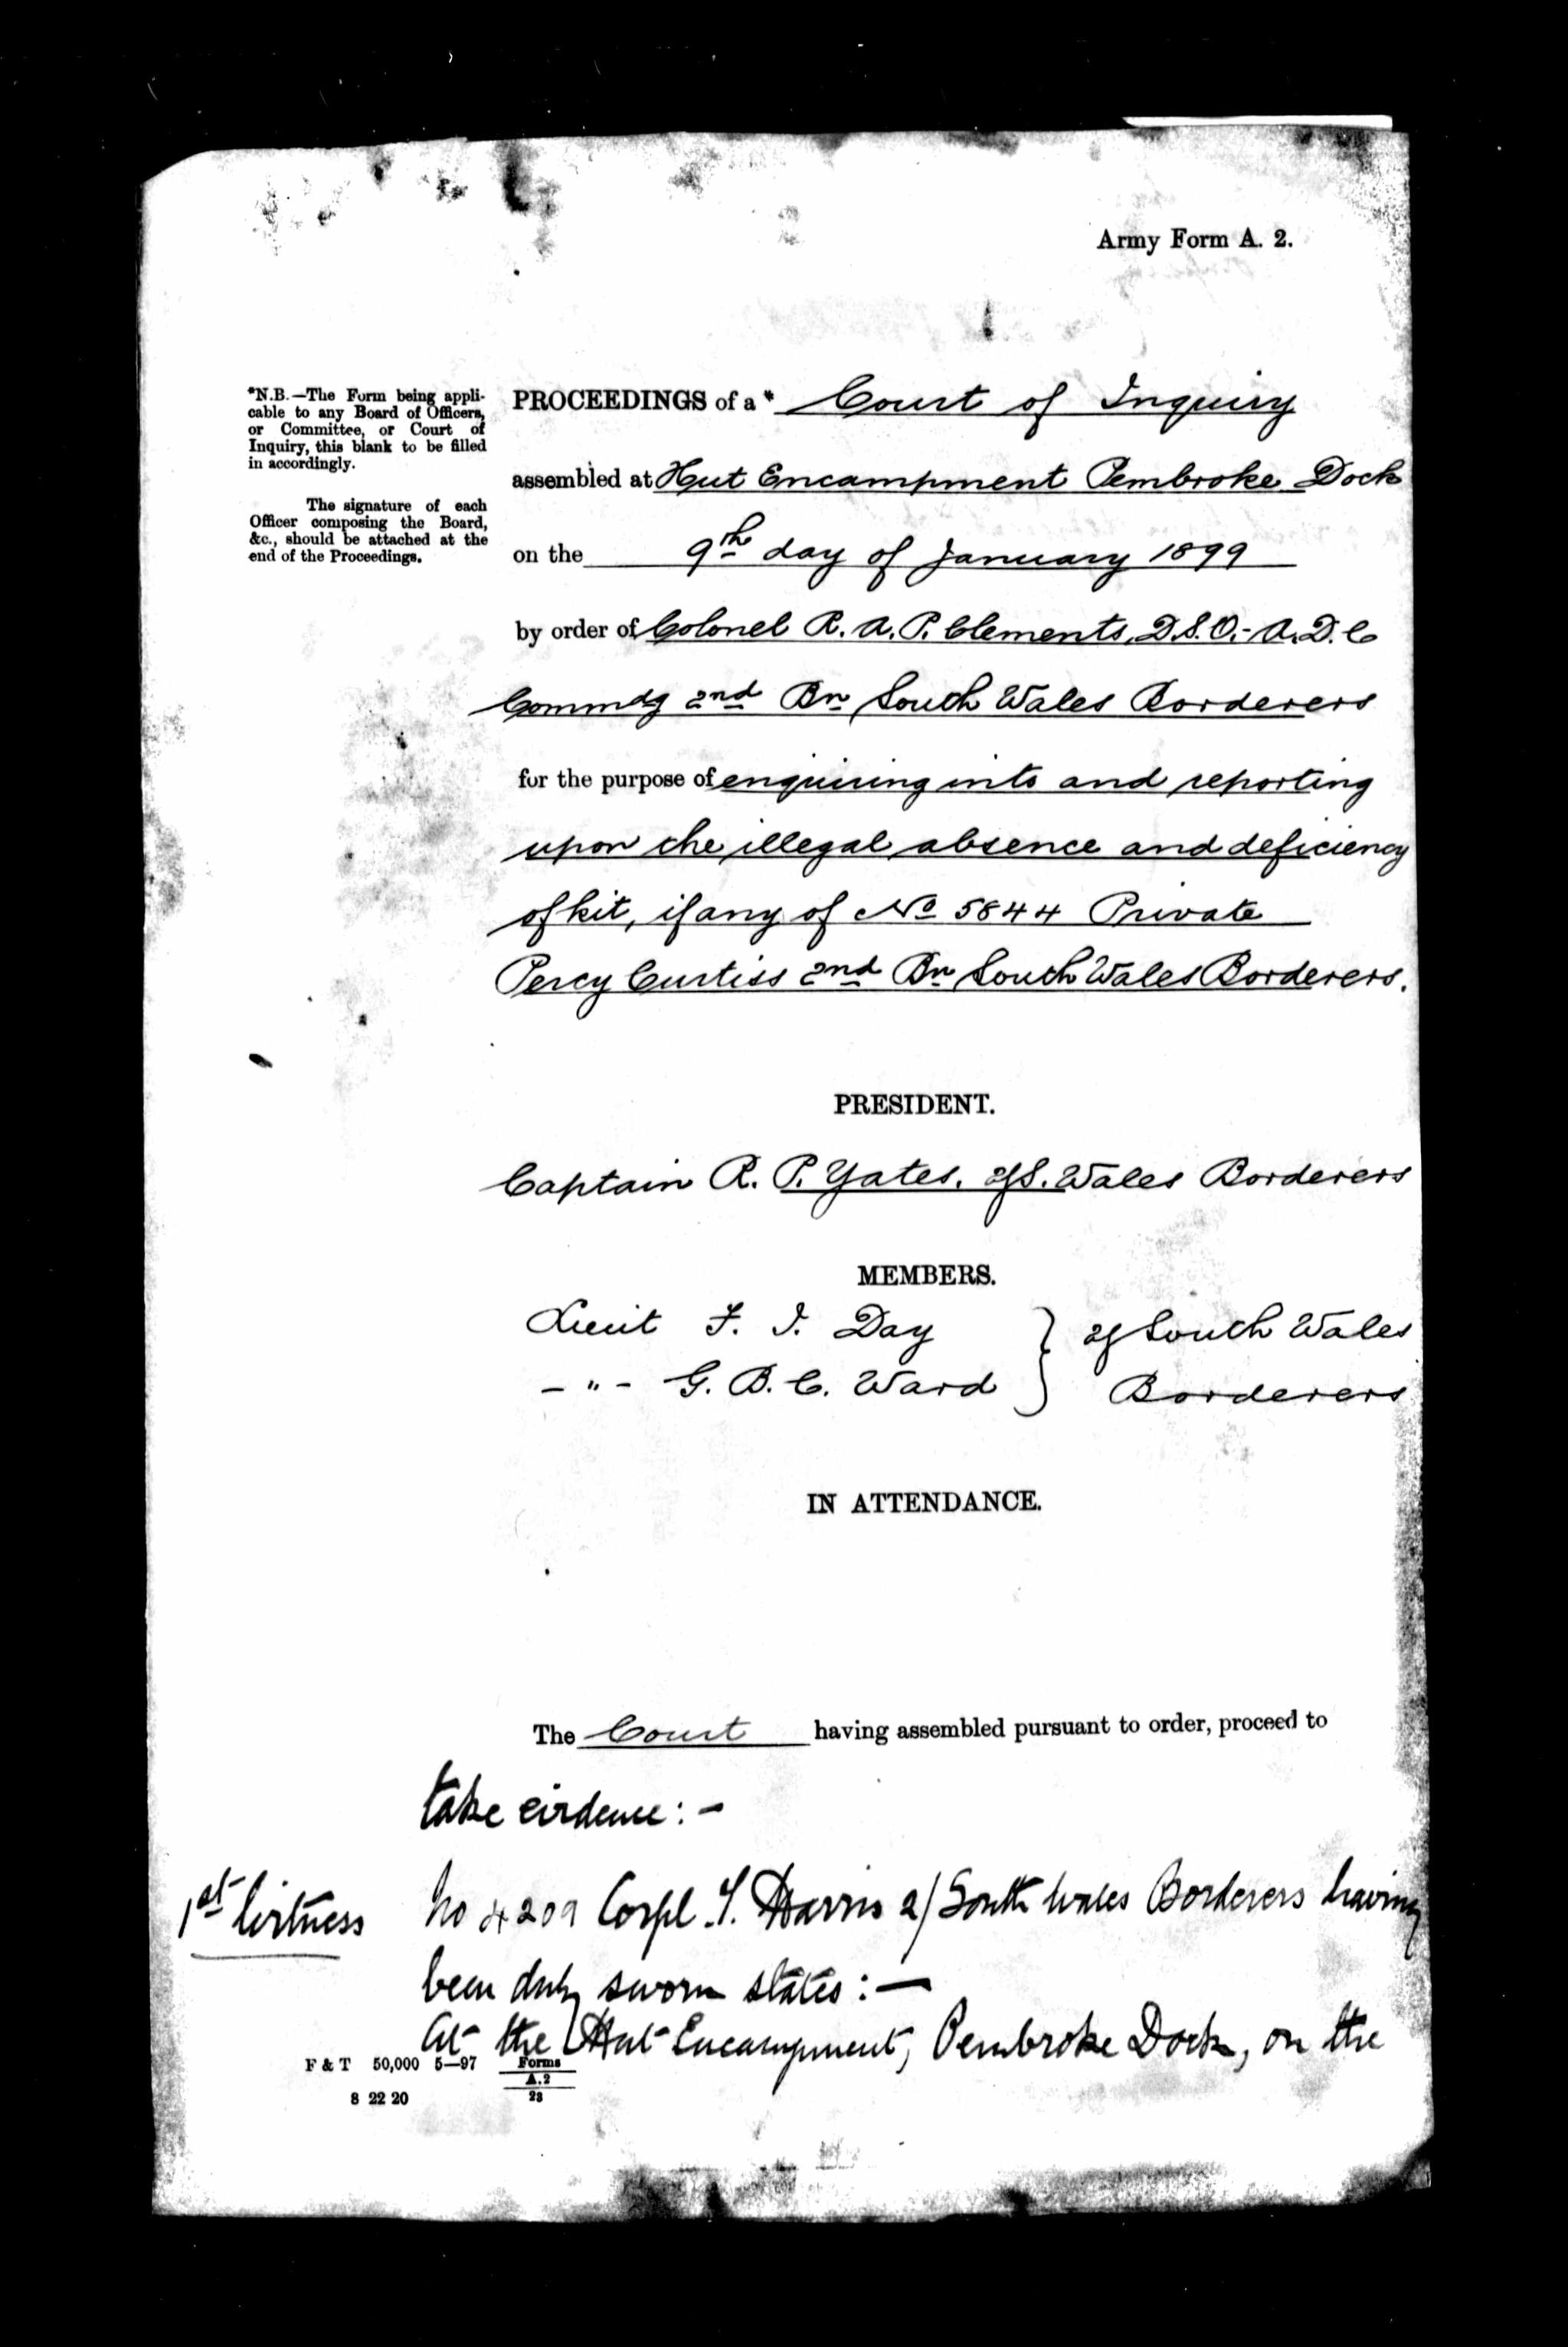 Army Form A. 2.
*N.B.—The Form being appli-
cable to any Board of Officers,
or Committee, or Court of
Inquiry, this blank to be filled
in accordingly.
The signature of each
Officer composing the Board,
&c., should be attached at the
end of the Proceedings.
PROCEEDINGS of a * Court of Inquiry
assembled at Hut Encampment Pembroke Dock
on the 9th day of January 1899
by order of Colonel R. A. P. Clements, D.S.O.- A.D.C
Commdg 2nd Bn South Wales Borderers
for the purpose of enquiring into and reporting
upon the illegal absence and deficiency
of kit, if any of No 5844 Private
Percy Curtiss 2nd Bn South Wales Borderers.
PRESIDENT.
Captain R. P. Yates. 2/S. Wales Borderers
MEMBERS.
Lieut F. I. Day } 2/ South Wales
- " - G. B. C. Ward } Borderers
IN ATTENDANCE.
The Court having assembled pursuant to order, proceed to
take evidence : -
1st Witness No 4209 Corpl Harris 2/ South Wales Borderers having
been duly sworn states : —
At the Hut Encampment, Pembroke Dock, on the
F & T 50,000 5—97 Forms
A.2
8 22 20 23